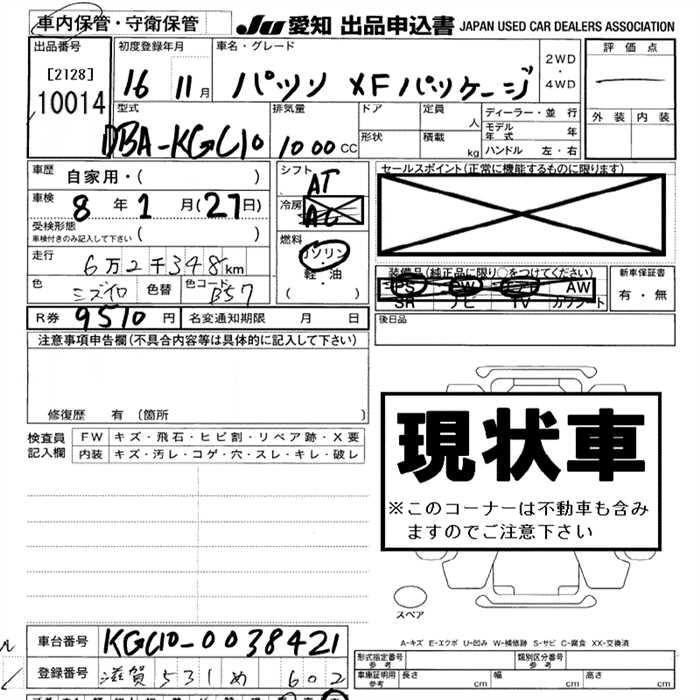 車内保管・守衛保管
JU 愛知 出品申込書 JAPAN USED CAR DEALERS ASSOCIATION
出品番号
[2128]
10014
初度登録年月
16 11月
車名・グレード
パッソ XFパッケージ
2WD
・
4WD
評価点
外装 内装
型式
DBA-KGC10
排気量
1000 CC
ドア
形状
定員
人
積載
kg
ディーラー・並行
モデル年式 年
ハンドル 左・右
車歴 自家用・( )
車検 8年1月(27日)
受検形態
車検付きのみ記入して下さい ( )
走行 6万2千348km
色 ミズイロ 色替 色コード B57
シフト
AT
冷房
AC
燃料
ガソリン
・
軽・油
( )
セールスポイント(正常に機能するものに限ります)
装備品(純正品に限り○をつけてください)
PS PW エアB AW
SR ナビ TV カワシート
新車保証書
有・無
後日品
R券 9510円 名変通知期限 月 日
注意事項申告欄(不具合内容等は具体的に記入して下さい)
修復歴 有 (箇所 )
検査員
記入欄
FW キズ・飛石・ヒビ割・リペア跡・X要
内装 キズ・汚レ・コゲ・穴・スレ・キレ・破レ
現状車
※このコーナーは不動車も含み
ますのでご注意下さい
スペア
A-キズ E-エクボ U-凹み W-補修跡 S-サビ C-腐食 XX-交換済
車台番号 KGC10-0038421
登録番号 滋賀 531 め 602
形式指定番号
参考
類別区分番号
参考
車庫証明用
参考
長さ cm 幅 cm 高さ cm